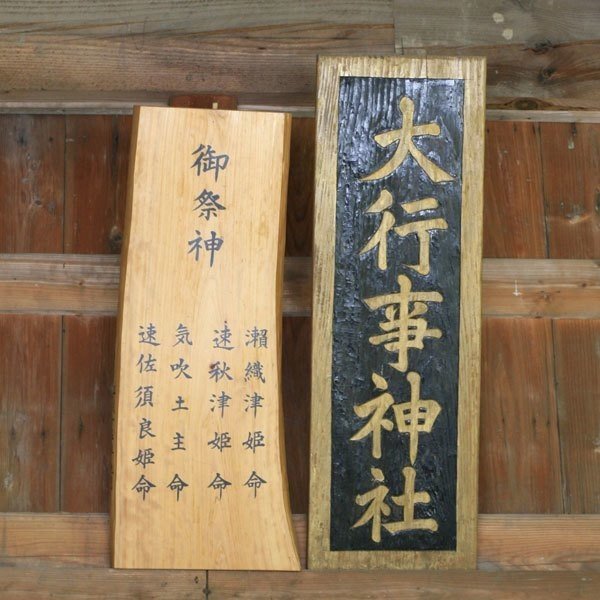 大行事神社
御祭神
瀬織津姫命
速秋津姫命
気吹土主命
速佐須良姫命